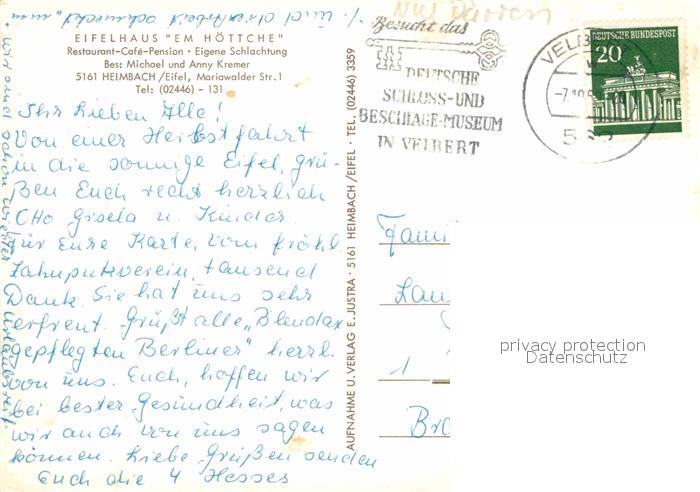 EIFELHAUS "EM HÖTTCHE"
Restaurant-Café-Pension · Eigene Schlachtung
Bes: Michael und Anny Kremer
5161 HEIMBACH/Eifel, Mariawalder Str. 1
Tel: (02446) - 131
Ihr lieben Alle!
Von einer Herbstfahrt
in die sonnige Eifel, grü-
ßen Euch recht herzlich
Otto Gisela u. Kinder
Für Eure Karte, vom fröhl
Zahnputzverein, tausend
Dank. Sie hat uns sehr
erfreut. Grüßt alle „Blendax
gepflegten Berliner" herzl.
von uns. Euch, hoffen wir
bei bester Gesundheit, was
wir auch von uns sagen
können. Liebe Grüßen senden
Euch die 4 Hesses
wir sind schon wieder urlaubsreif
und die Arbeit schmeckt
AUFNAHME U. VERLAG E. JUSTRA · 5161 HEIMBACH/EIFEL · TEL. (02446) 3359
Besucht das
DEUTSCHE
SCHLOSS-UND
BESCHLÄGE-MUSEUM
IN VELBERT
VELB
DEUTSCHE BUNDESPOST
20
Fami
1
privacy protection
Datenschutz